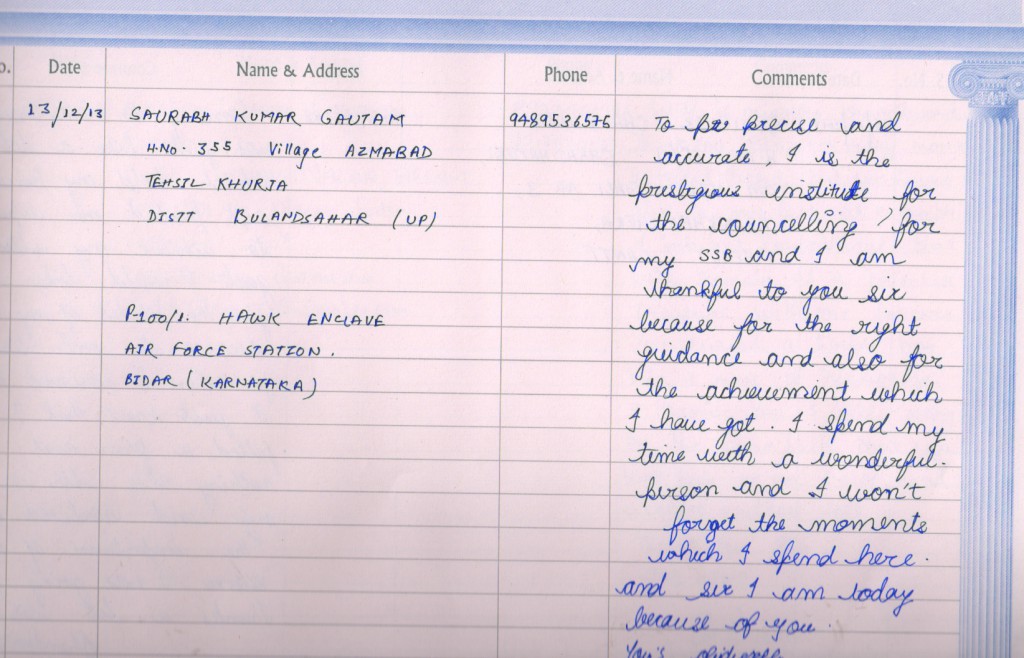 Date Name & Address Phone Comments
13/12/13 SAURABH KUMAR GAUTAM 9489536576 To be precise and
H.No. 355 Village AZMABAD accurate, I is the
TEHSIL KHURJA prestigious institute for
DISTT BULANDSAHAR (UP) the councelling for
my SSB and I am
thankful to you sir
P-100/1. HAWK ENCLAVE because for the right
AIR FORCE STATION. guidance and also for
BIDAR (KARNATAKA) the achievement which
I have got. I spend my
time with a wonderful.
person and I won't
forget the moments
which I spend here.
and sir I am today
because of you.